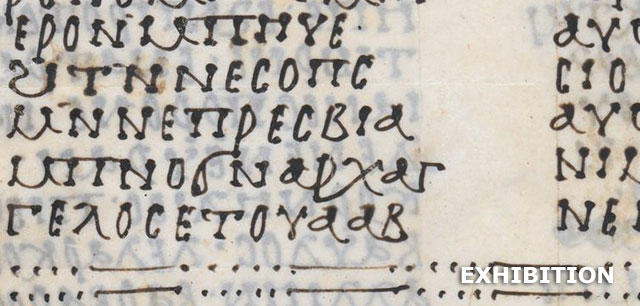 ⲉⲣⲟⲛⲙⲡⲏⲩⲉ
ϩⲓⲧⲛⲛⲉⲥⲟⲡⲥ
ⲙⲛⲛⲉⲡⲣⲉⲥⲃⲓⲁ
ⲙⲡⲛⲟϭⲛⲁⲣⲭⲁⲅ
ⲅⲉⲗⲟⲥⲉⲧⲟⲩⲁⲁⲃ
ⲁⲩ
ⲥⲓⲟ
ⲁⲩ
ⲛⲉ
EXHIBITION